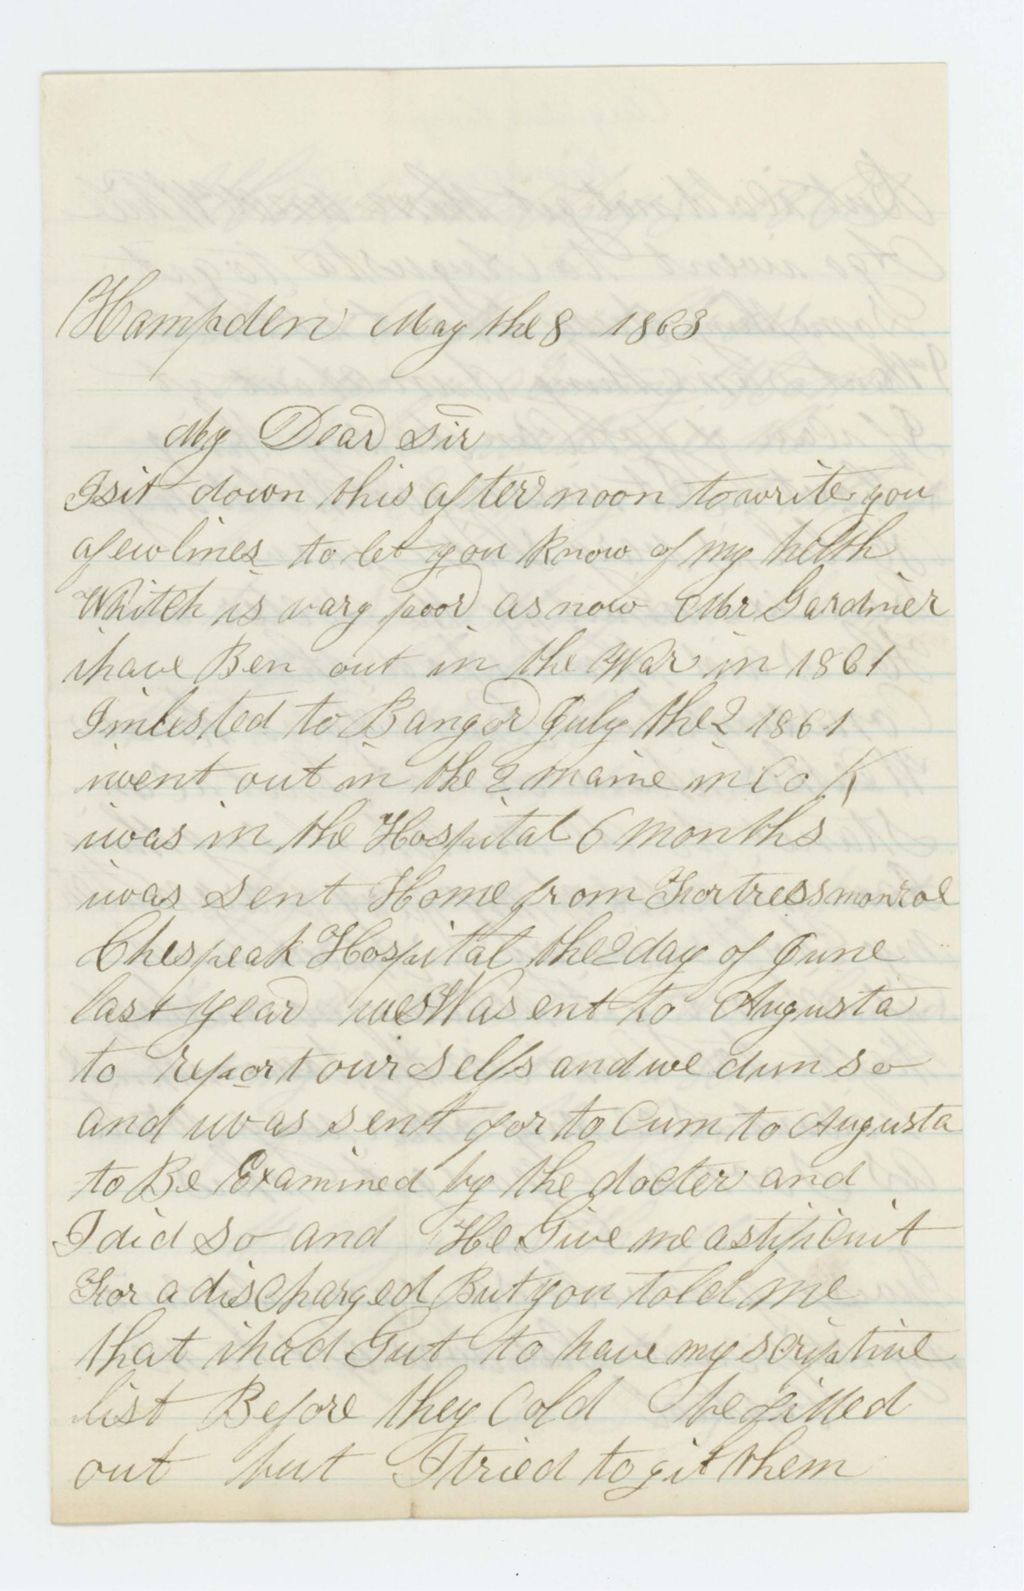 Hampden May the 8 1863
My Dear Sir
I sit down this after noon to write you
a few lines to let you Know of my helth
Whitch is vary poor as now Mr Gardnier
i have Ben out in the War in 1861
I inlisted to Bangor July the 2 1861
i went out in the 2 maine in Co K
i was in the Hospital 6 months
i was sent Home from Fortress monroe
Chespeak Hospital the 2 day of June
last year was sent to Augusta
to report our selfs and we dun so
and was sent for to Cum to Augusta
to Be Examined by the docter and
I did so and He Give me a stificuit
For a discharged But you told me
that i had Gut to have my scriptive
list Before they Cold be filled
out but I tried to git them